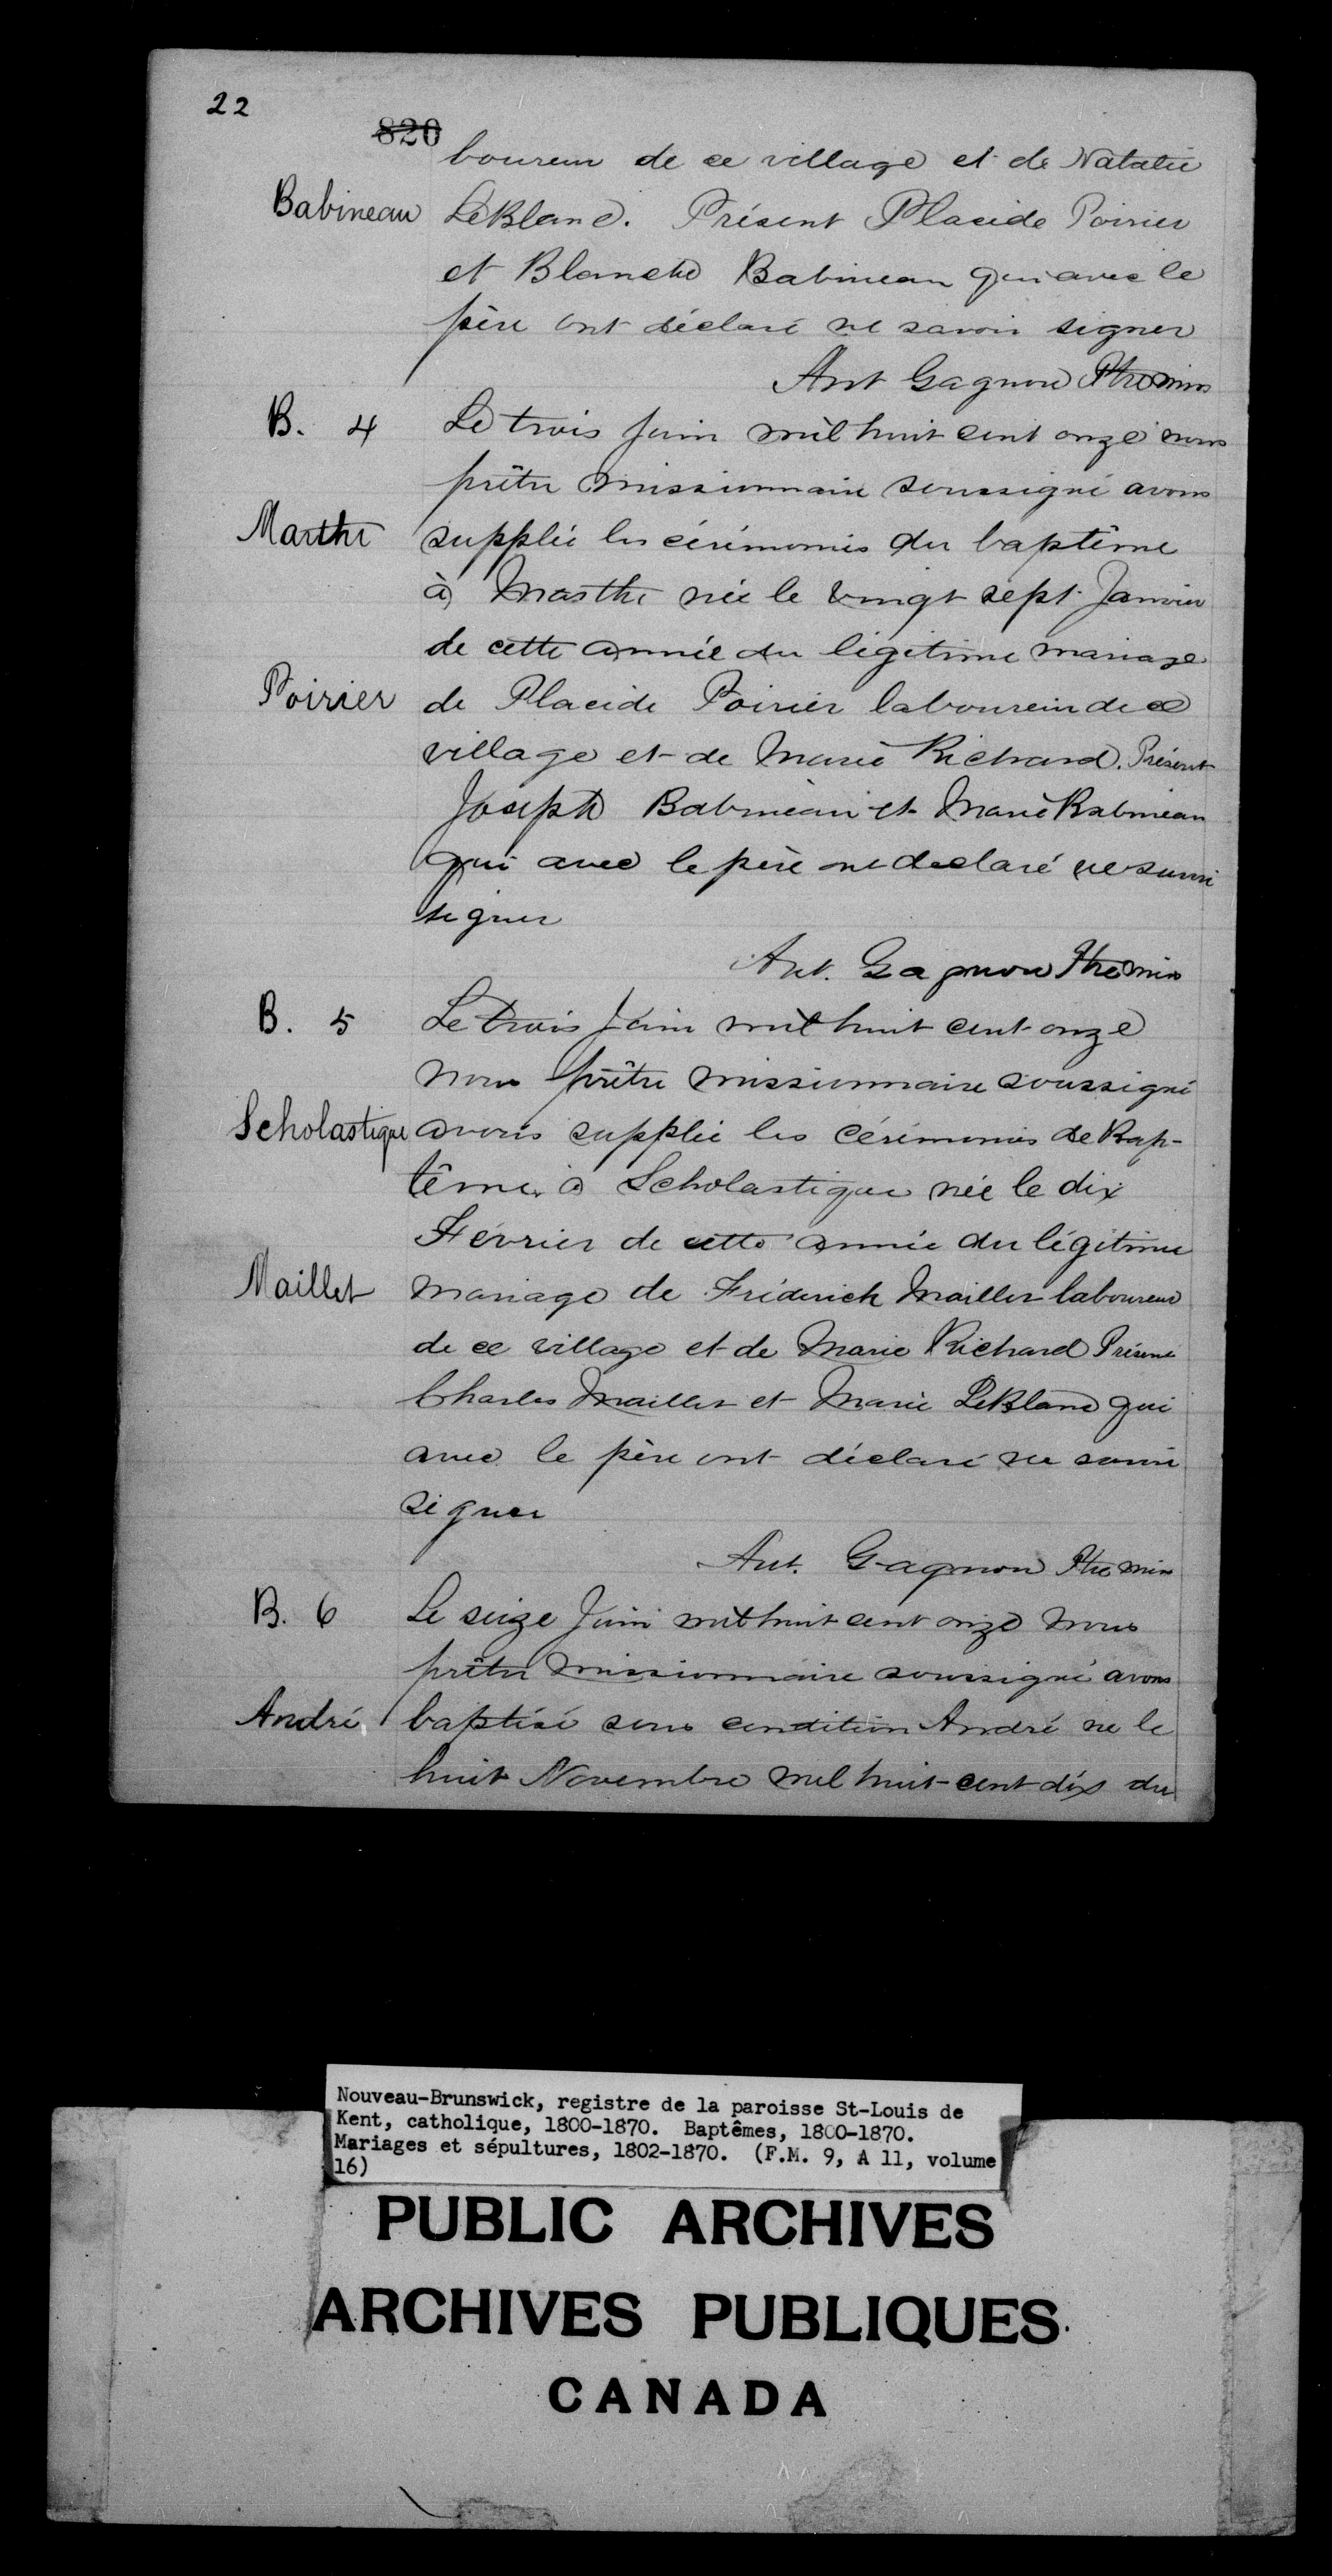 22
820
boureur de ce village et de Natalie
Babineau LeBlanc. Présent Placide Poirier
et Blanche Babineau qui avec le
père ont déclaré ne savoir signer
Ant Gagnon Ptre miss
B. 4 Le trois Juin mil huit cent onze nous
prêtre missionnaire soussigné avons
Marthe supplée les cérémonies du baptême
à Marthe née le vingt sept Janvier
de cette année du légitime mariage
Poirier de Placide Poirier laboureur de ce
village et de Marie Richard. Présent
Joseph Babineau et Marie Babineau
qui avec le père ont declaré ne savoir
signer
Ant. Gagnon Ptre miss
B. 5 Le trois Juin mil huit cent onze
nous prêtre missionnaire soussigné
Scholastique avons supplée les cérémonies de Bap-
tême à Scholastique née le dix
Février de cette année du légitime
Maillet mariage de Fréderick Maillet laboureur
de ce village et de Marie Richard Présent
Charles Maillet et Marie LeBlanc qui
avec le père ont déclaré ne savoir
signer
Ant. Gagnon Ptre miss
B. 6 Le seize Juin mil huit cent onze nous
prêtre missionnaire soussigné avons
André baptisé sous condition André né le
huit Novembre mil huit-cent dix du
Nouveau-Brunswick, registre de la paroisse St-Louis de
Kent, catholique, 1800-1870. Baptêmes, 1800-1870.
Mariages et sépultures, 1802-1870. (F.M. 9, A 11, volume
16)
PUBLIC ARCHIVES
ARCHIVES PUBLIQUES
CANADA